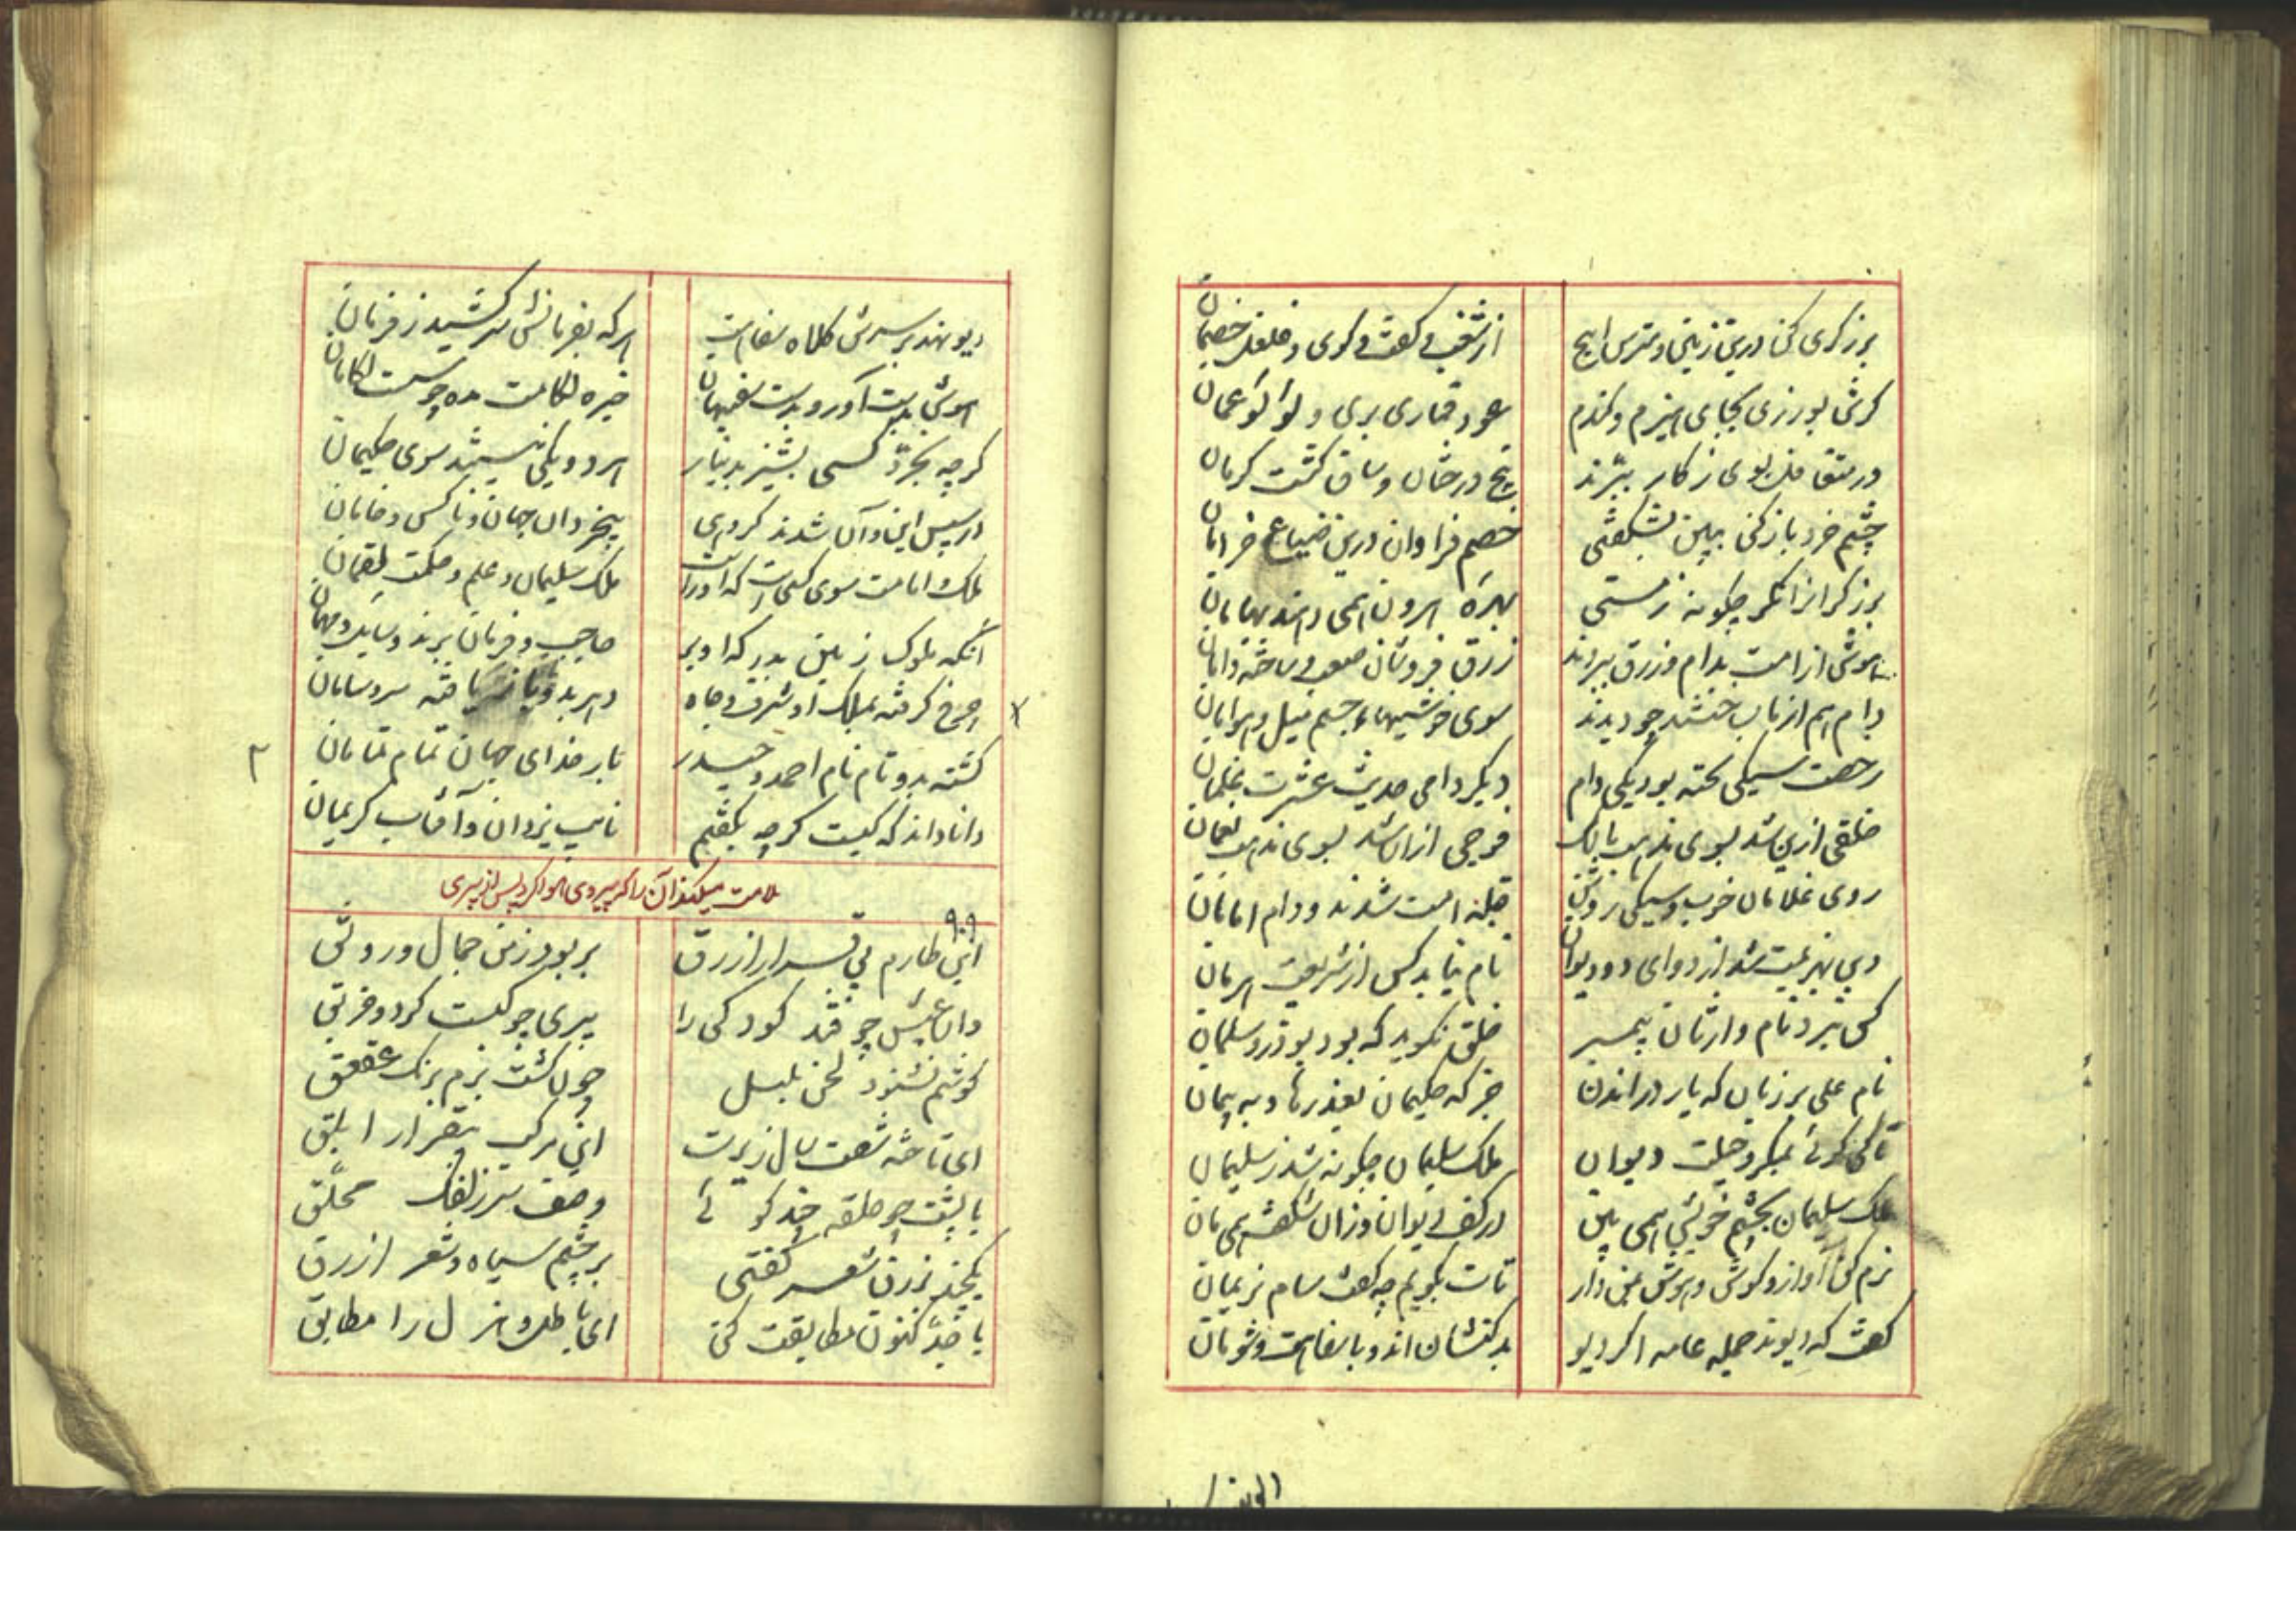 برزگری کن درین زمین و مترس ایچ
از شغب و گفت و گوی و غلغل خصمان
گر شی بورزی بجای هیزم و گندم
عود قماری بری و لؤلؤ عمان
ور متغافل بوی ز کار ببرند
بیخ درختان و ساق کشت کرمان
چشم خرد باز کن ببین بشگفتی
خصم فراوان درین ضیاع خرامان
برزگرانرا نگر چگونه ز مستی
بهره امروز همی دهند بهامان
هوش از امت بدام و زرق ببردند
زرق فروشان صعب و ساخته دامان
دام هم از ما بساختند چو دیدند
سوی خوشیهاء جسم میل و هوامان
رخصت سیکی پخته بود یکی دام
دیگر دامی حدیث عشرت غلمان
خلقی ازین شد بسوی مذهب مالک
فوجی ازان شد بسوی مذهب نعمان
روی غلامان خوب و سیکی روشن
قبله امت شدند و دام امامان
دین بهزیمت شد از دوای دو دیوان
نام نیابد کس از شریعت هرمان
کس نبرد نام وارثان پیمبر
خلق نگوید که بود بوذر و سلمان
نام علی بر زبان که یارد راندن
جز که حکیمان بعذرها و به پیمان
تا کی گوئی بمکر و حیلت دیوان
ملک سلیمان چگونه شد ز سلیمان
ملک سلیمان بچشم خویش همی بین
در کف دیوان وزان شگفت همی مان
نرم کن آواز و گوش و هوش بمن دار
تات بگویم چه گفت سام نریمان
گفت که دیوند جمله عامه اگر دیو
بد کنشان اند و با سفاهت و شومان
دیو نهد بر سرش کلاه سفاهت
هر که بفرمانش سر کشید ز فرمان
هوش بدست آورد بدست سفیهان
خیره لکامت مده چو مست لکامان
گرچه بخرد کسی بشیز بدینار
هر دو یکی نیستند سوی حکیمان
از سپس این و آن شدند گروهی
بیخردان جهان و ناکس و خامان
ملک و امامت سوی کسی است که او راست
ملک سلیمان و علم و حکمت لقمان
آنکه ملوک زمین بدرگه او بر
حاجب و فرمان برند و سایس و مهمان
چرخ گرفته بملک او شرف و جاه
دهر بدو باز یافته سر و سامان
گشته بدو تام نام احمد و حیدر
بار خدای جهان تمام تمامان
دانا داند که کیست گرچه نگفتم
نایب یزدان و آفتاب کریمان
ملامت میکند آن را که پیروی هوا کرد پس از پیری
۹۰۹
این طارم بی قرار ازرق
بربود ز من جمال و رونق
وان عیش چو قند کودکی را
پیری چو کبست کرد و خربق
گوشم نشنود لحن بلبل
چون گشت سرم برنگ عقعق
ای تاخته شصت سال زیرت
این مرکب بیقرار ابلق
با پشت چو حلقه چند گوئی
وصف سر زلفک محلق
یکچند بزرق شعر گفتی
بر چشم سیاه و شعر ازرق
با جد کنون مطابقت کن
ای باطل و هزل را مطابق